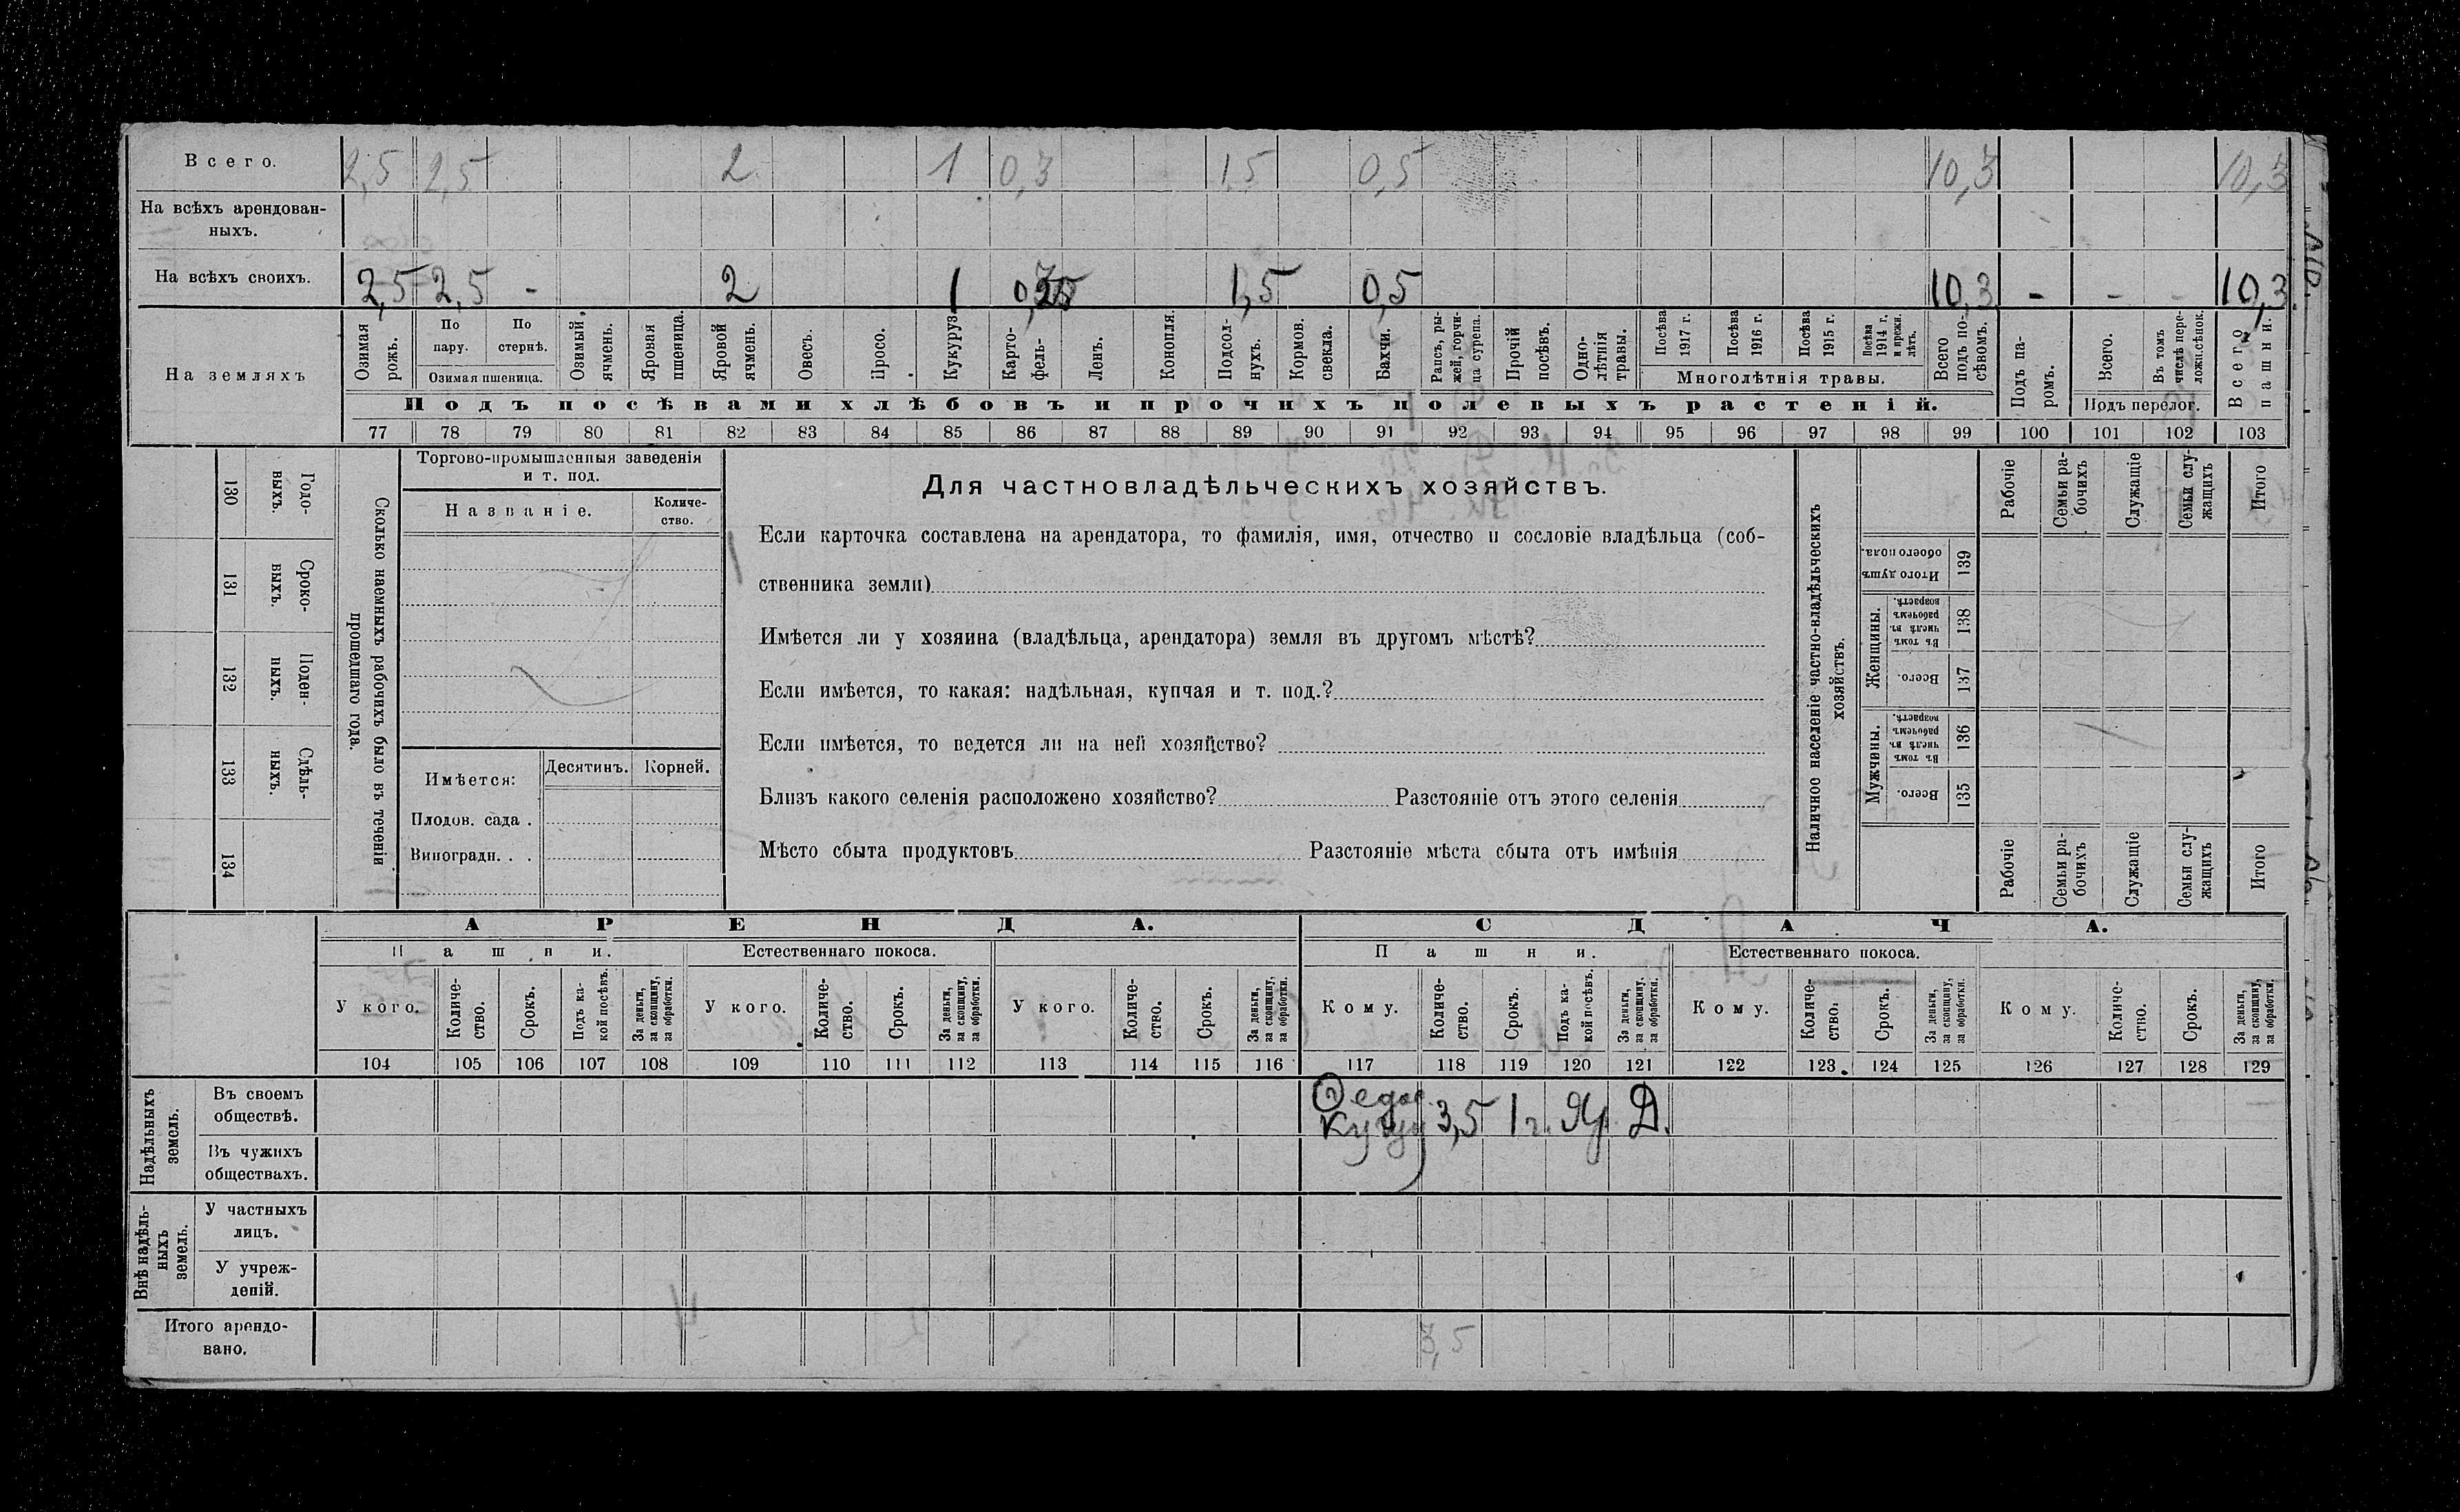 Всего. 2,5 2,5 2 1 0,3 1,5 0,5 10,3 10,3
На всѣхъ арендован-
ныхъ.
На всѣхъ своихъ. 2,5 2,5 - 2 1 1,5 0,5 10,3 - - - 10,3
На земляхъ
Озимая рожь.
По пару.
По стернѣ.
Озимая пшеница.
Озимый ячмень.
Яровая пшеница.
Яровой ячмень.
Овесъ.
Просо.
Кукуруза
Карто-
фель-
Ленъ.
Конопля.
Подсол-
нухъ.
Кормов. свекла.
Бахчи.
Рапсъ, ры-
жей, горчи-
ца сурепа.
Прочій посѣвъ.
Одно-
лѣтнія травы.
Посѣва 1917 г.
Посѣва 1916 г.
Посѣва 1915 г.
Посѣва 1914 г. и прежн. лѣтъ.
Многолѣтнія травы.
Всего подъ по-
сѣвомъ.
Подъ па-
ромъ.
Всего.
Въ томъ числѣ пере-
ложн.сѣнок.
Подъ перелог.
Всего пашни.
Подъ посѣвами хлѣбовъ и прочихъ полевыхъ растеній.
77 78 79 80 81 82 83 84 85 86 87 88 89 90 91 92 93 94 95 96 97 98 99 100 101 102 103
130 Годо-
выхъ.
131 Сроко-
выхъ.
132 Поден-
ныхъ.
133 Сдѣль-
ныхъ.
134
Сколько наемныхъ рабочихъ было въ теченіи
прошедшаго года.
Торгово-промышленныя заведенія
и т. под.
Названіе.
Количе-
ство.
Имѣется: Десятинъ. Корней.
Плодов. сада .
Виноградн. . .
Для частновладѣльческихъ хозяйствъ.
Если карточка составлена на арендатора, то фамилія, имя, отчество и сословіе владѣльца (соб-
ственника земли)
Имѣется ли у хозяина (владѣльца, арендатора) земля въ другомъ мѣстѣ?
Если имѣется, то какая: надѣльная, купчая и т. под.?
Если имѣется, то ведется ли на ней хозяйство?
Близъ какого селенія расположено хозяйство? Разстояніе отъ этого селенія
Мѣсто сбыта продуктовъ Разстояніе мѣста сбыта отъ имѣнія
Наличное населеніе частно-владѣльческихъ
хозяйствъ.
Рабочіе
Семьи ра-
бочихъ
Служащіе
Семьи слу-
жащихъ
Итого
Итого душъ обоего пола. 139
Женщины.
Въ томъ числѣ въ рабочемъ возрастѣ. 138
Всего. 137
Мужчины.
Въ томъ числѣ въ рабочемъ возрастѣ. 136
Всего. 135
Рабочіе
Семьи ра-
бочихъ
Служащіе
Семьи слу-
жащихъ
Итого
АРЕНДА. СДАЧА.
Пашни. Естественнаго покоса. Пашни. Естественнаго покоса.
У кого. Количе-
ство. Срокъ. Подъ ка-
кой посѣвъ. За деньги, за скопщину, за обработки.
У кого. Количе-
ство. Срокъ. За деньги, за скопщину, за обработки.
У кого. Количе-
ство. Срокъ. За деньги, за скопщину, за обработки.
Кому. Количе-
ство. Срокъ. Подъ ка-
кой посѣвъ. За деньги, за скопщину, за обработки.
Кому. Количе-
ство. Срокъ. За деньги, за скопщину, за обработки.
Кому. Количе-
ство. Срокъ. За деньги, за скопщину, за обработки.
104 105 106 107 108 109 110 111 112 113 114 115 116 117 118 119 120 121 122 123 124 125 126 127 128 129
Надѣльныхъ земель.
Въ своемъ
обществѣ. 3,5 1 г. Яр. Д.
Въ чужихъ
обществахъ.
Внѣ надѣль-
ныхъ земель.
У частныхъ
лицъ.
У учреж-
деній.
Итого арендо-
вано. 3,5